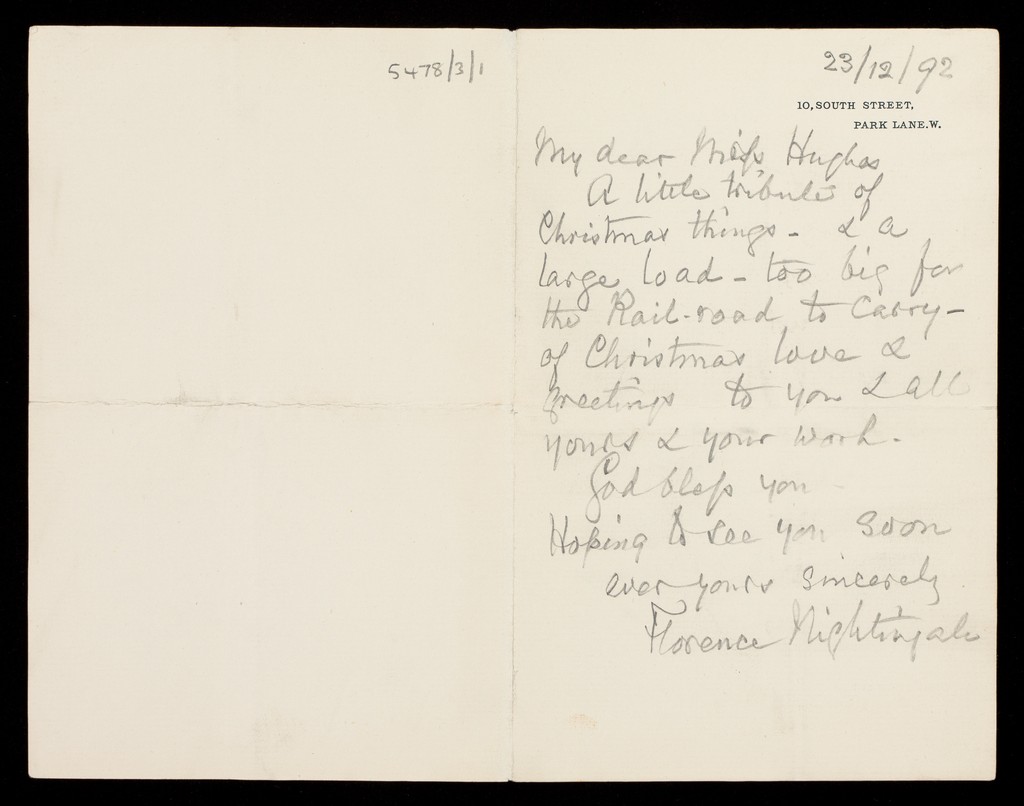 5478/3/1
23/12/92
10, SOUTH STREET,
PARK LANE. W.
My dear Miss Hughes
A little tribute of
Christmas things - & a
large load - too big for
the Rail-road to carry -
of Christmas love &
greetings to you & all
yours & your work.
God bless you
Hoping to see you soon
ever yours sincerely
Florence Nightingale